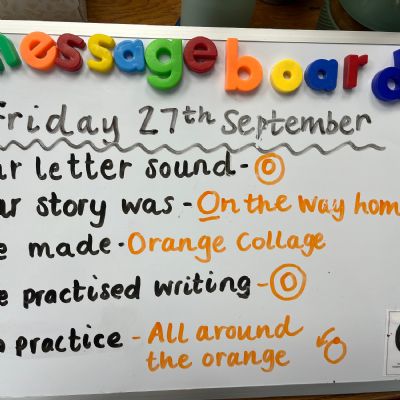 messageboard
Friday 27th September
ur letter sound - o
ur story was - On the way hom
e made - Orange Collage
e practised writing - o
practice - All around
the orange